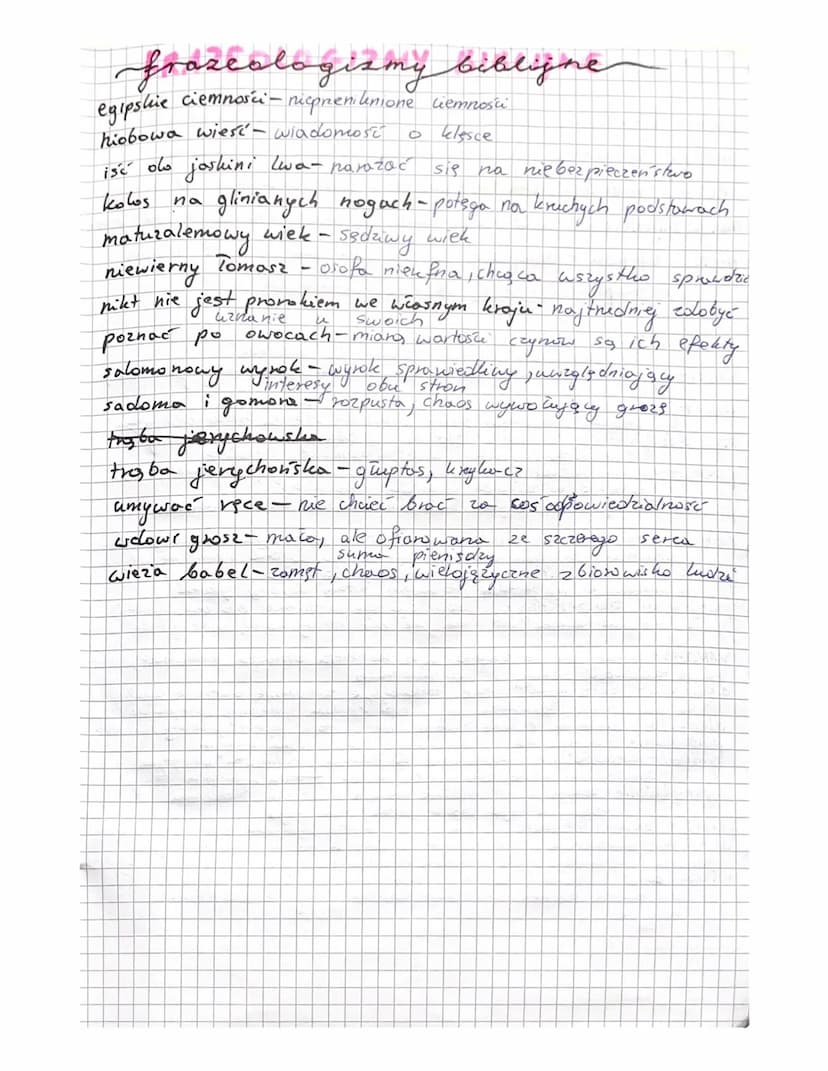 frazeologizmy biblijne
egipskie ciemności – nieprzeniknione ciemności
hiobowa wieść – wiadomość o klęsce
iść do jaskini lwa – narażać się na niebezpieczeństwo
kolos na glinianych nogach – potęga na kruchych podstawach
matuzalemowy wiek – sędziwy wiek
niewierny Tomasz – osoba nieufna, chcąca wszystko sprawdzić
nikt nie jest prorokiem we własnym kraju – najtrudniej zdobyć
uznanie u swoich
poznać po owocach – miarą wartości czynów są ich efekty
salomonowy wyrok – wyrok sprawiedliwy, uwzględniający
interesy obu stron
sadoma i gomora – rozpusta, chaos wywołujący grozę
trąba jerychowska
trąba jerychońska – głuptas, krzykacz
umywać ręce – nie chcieć brać za coś odpowiedzialność
wdowi grosz – mała, ale ofiarowana ze szczerego serca
suma pieniędzy
wieża babel – zamęt, chaos, wielojęzyczne zbiorowisko ludzi